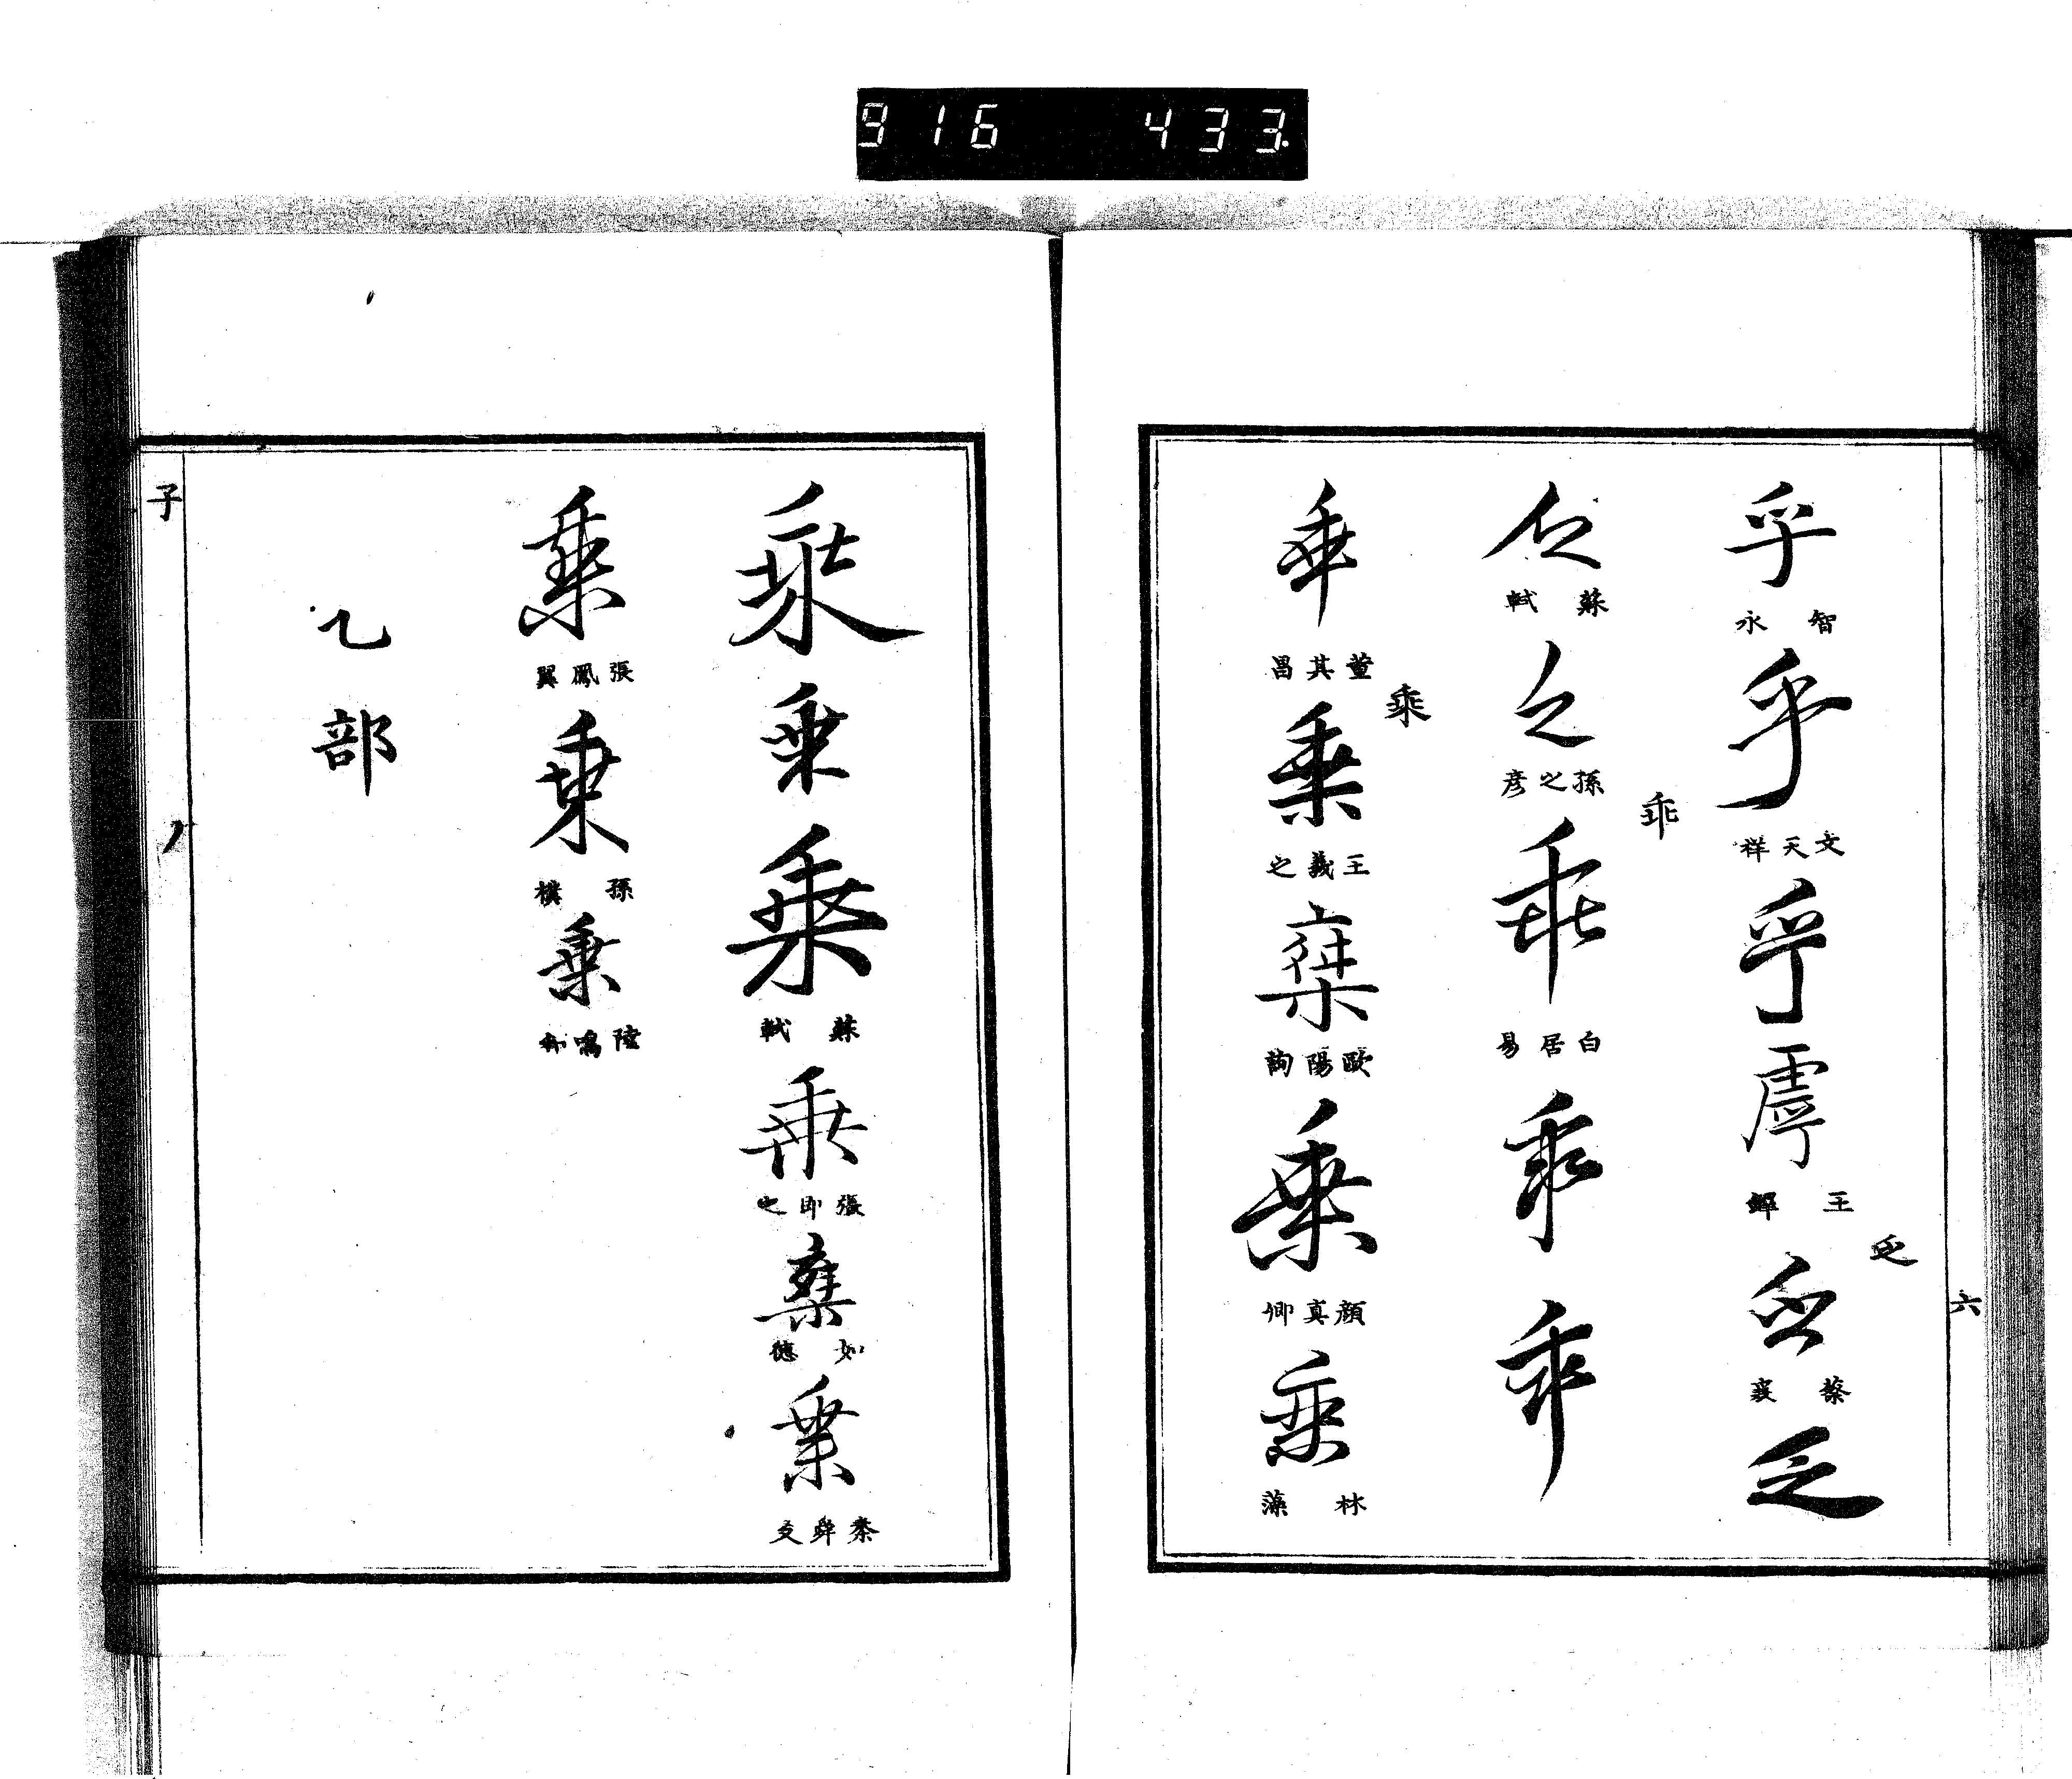 916 433
六
乎 智永 乎 文天祥 乎 虖 王鐸 乏 乏 蔡襄 乏
乏 蘇軾 乏 孫之彦 乖 乖 白居易 乖 乖
乖 董其昌 乘 乘 王羲之 椉 歐陽詢 乘 顔真卿 乘 林藻
乘 乘 乘 蘇軾 乘 張即之 椉 如德 乘
乘 張鳳翼 乘 孫樸 乘 陸鳴
乙部
子
丿